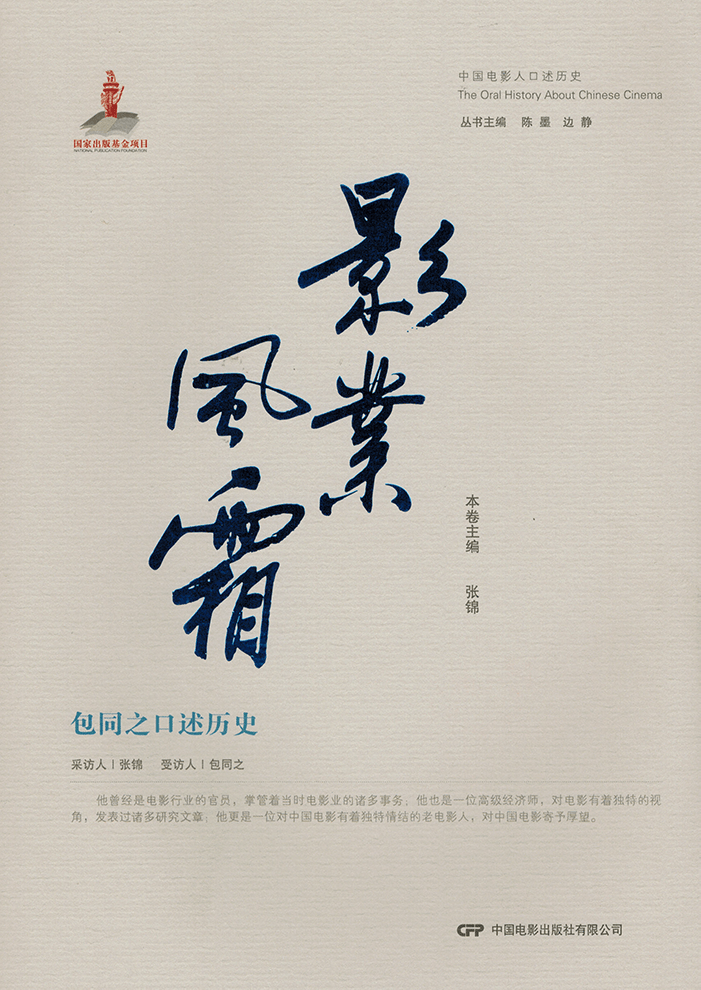 中国电影人口述历史
The Oral History About Chinese Cinema
丛书主编 陈墨 边静
国家出版基金项目
NATIONAL PUBLICATION FOUNDATION
影業
風霜
本卷主编 张锦
包同之口述历史
采访人|张锦 受访人|包同之
他曾经是电影行业的官员，掌管着当时电影业的诸多事务；他也是一位高级经济师，对电影有着独特的视
角，发表过诸多研究文章；他更是一位对中国电影有着独特情结的老电影人，对中国电影寄予厚望。
CFP 中国电影出版社有限公司